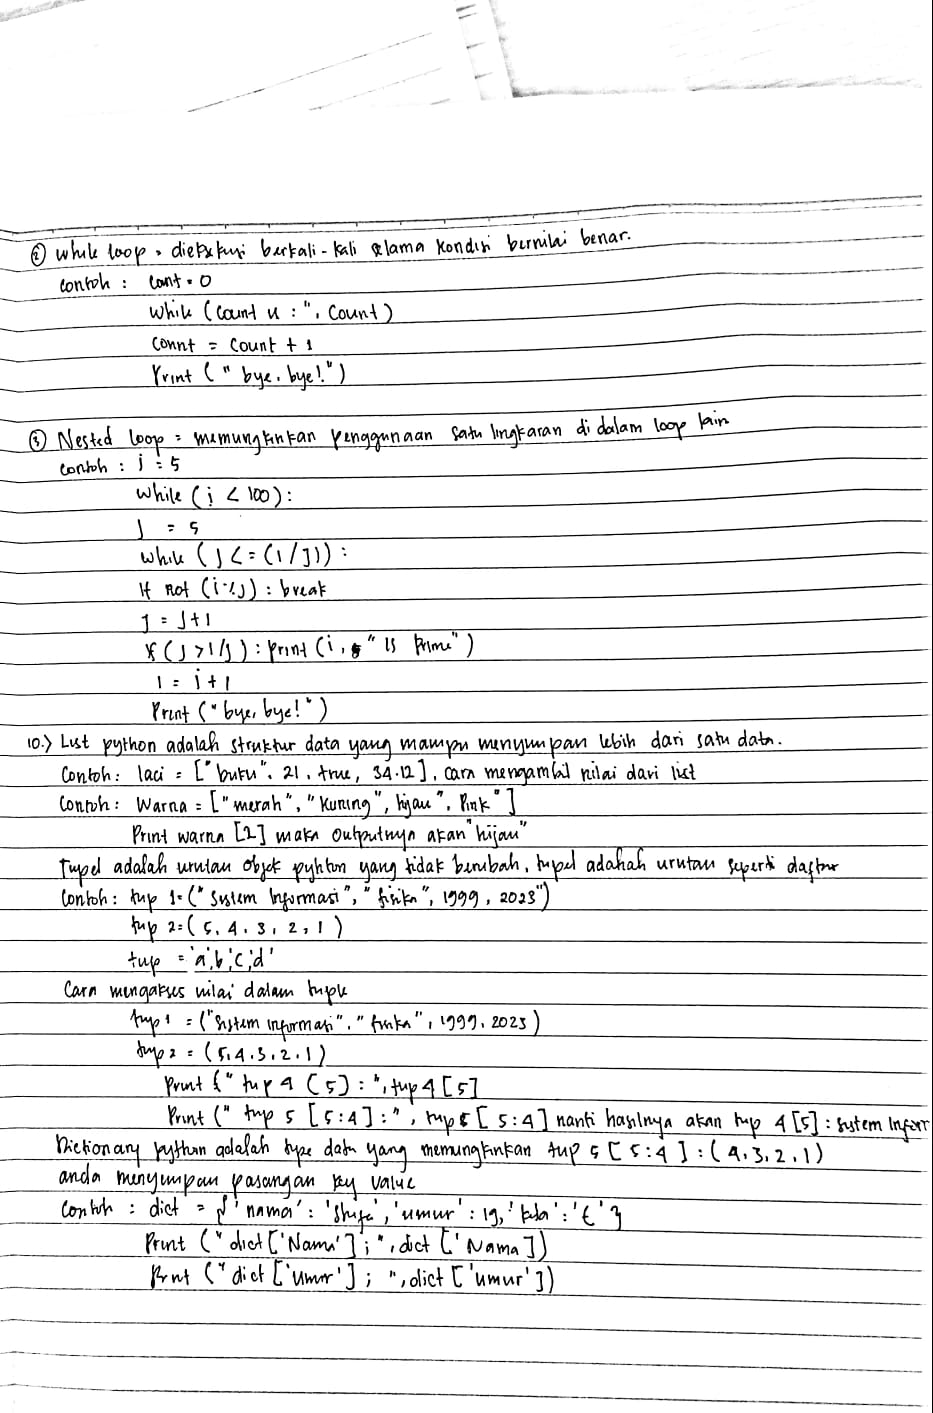 ② while loop = dieksekusi berkali-kali selama kondisi bernilai benar.
contoh : Cont = 0
while (Count u : ", Count)
Connt = Count + 1
Print (" bye, bye!")
③ Nested loop = memungkinkan penggunaan satu lingkaran di dalam loop lain
contoh : i = 5
while (i < 100):
J = 5
while (J <= (i/J)) :
If not (i%J) : break
J = J+1
If (J > i/J) : print (i, " is prime")
i = i+1
Print ("bye, bye!")
10.) List python adalah struktur data yang mampu menyimpan lebih dari satu data.
Contoh : laci = ["buku", 21, true, 34.12], cara mengambil nilai dari list
Contoh : Warna = ["merah", "Kuning", hijau", Pink"]
Print warna [2] maka outputnya akan "hijau"
Tupel adalah urutan objek pyhton yang tidak berubah, tupel adahah urutan seperti daftar
Contoh : tup 1 = (" Sistem Informasi", "fisika", 1999, 2023")
tup 2 = (5, 4, 3, 2, 1)
tup = 'a','b','c','d'
Cara mengakses nilai dalam tuple
tup 1 = ("Sistem informasi", "fisika", 1999, 2023)
tup 2 = (5,4,3,2,1)
Print (" tup 4 (5) : ", tup 4 [5]
Print (" tup 5 [5:4] : ", tup 5 [5:4] nanti hasilnya akan tup 4 [5] : sistem Infor
Dictionary python adalah type data yang memungkinkan tup 5 [5:4] : (4,3,2,1)
anda menyimpan pasangan key value
Contoh : dict = {'nama' : 'Shifa', 'umur' : 19, : 'E'}
Print ("dict ['Nama'] ; ", dict ['Nama])
Print ("dict ['umur'] ; ", dict ['umur'])